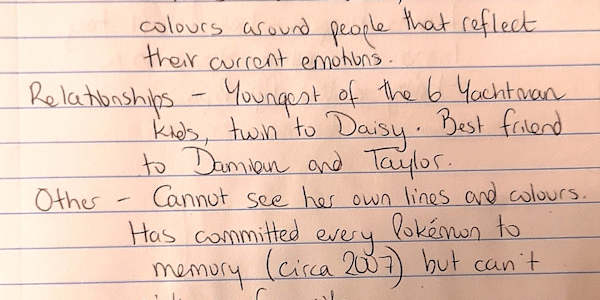 colours around people that reflect
their current emotions.
Relationships - Youngest of the 6 Yachtman
kids, twin to Daisy. Best friend
to Damien and Taylor.
Other - Cannot see her own lines and colours.
Has committed every Pokémon to
memory (circa 2007) but can't